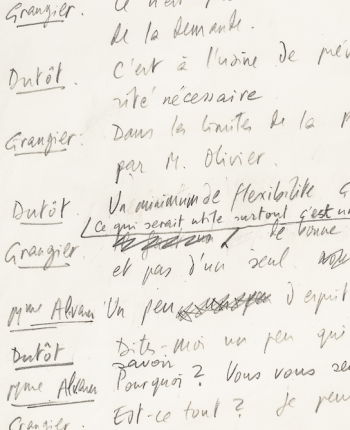 Grangier. Ce n'est p
de la demande.
Dutôt. C'est à l'usine de prév
sité nécessaire
Grangier. Dans les limites de la p
par M. Olivier.
Dutôt. Un minimum de flexibilité
Ce qui serait utile surtout c'est un
Grangier de bonne
et pas d'un seul
Mme Alvarez Un peu d'esprit
Dutôt Dites-moi un peu qui
savoir
Mme Alvarez Pourquoi ? Vous vous se
Grangier. Est-ce tout ? Je peu